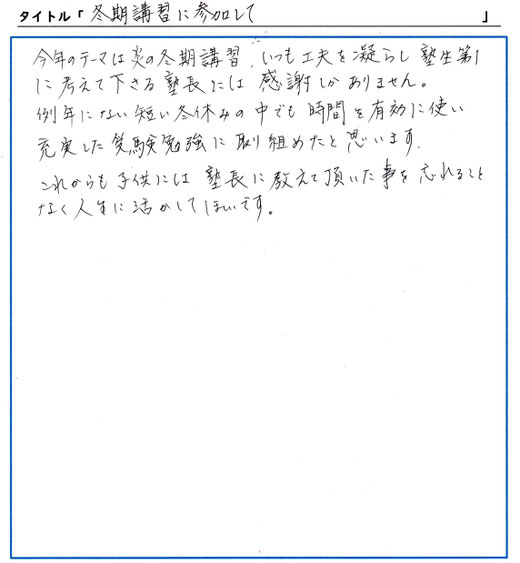 タイトル「 冬期講習に参加して 」
今年のテーマは炎の冬期講習、いつも工夫を凝らし塾生第1
に考えて下さる塾長には感謝しかありません。
例年にない短い冬休みの中でも時間を有効に使い
充実した受験勉強に取り組めたと思います。
これからも子供には塾長に教えて頂いた事を忘れること
なく人生に活かしてほしいです。